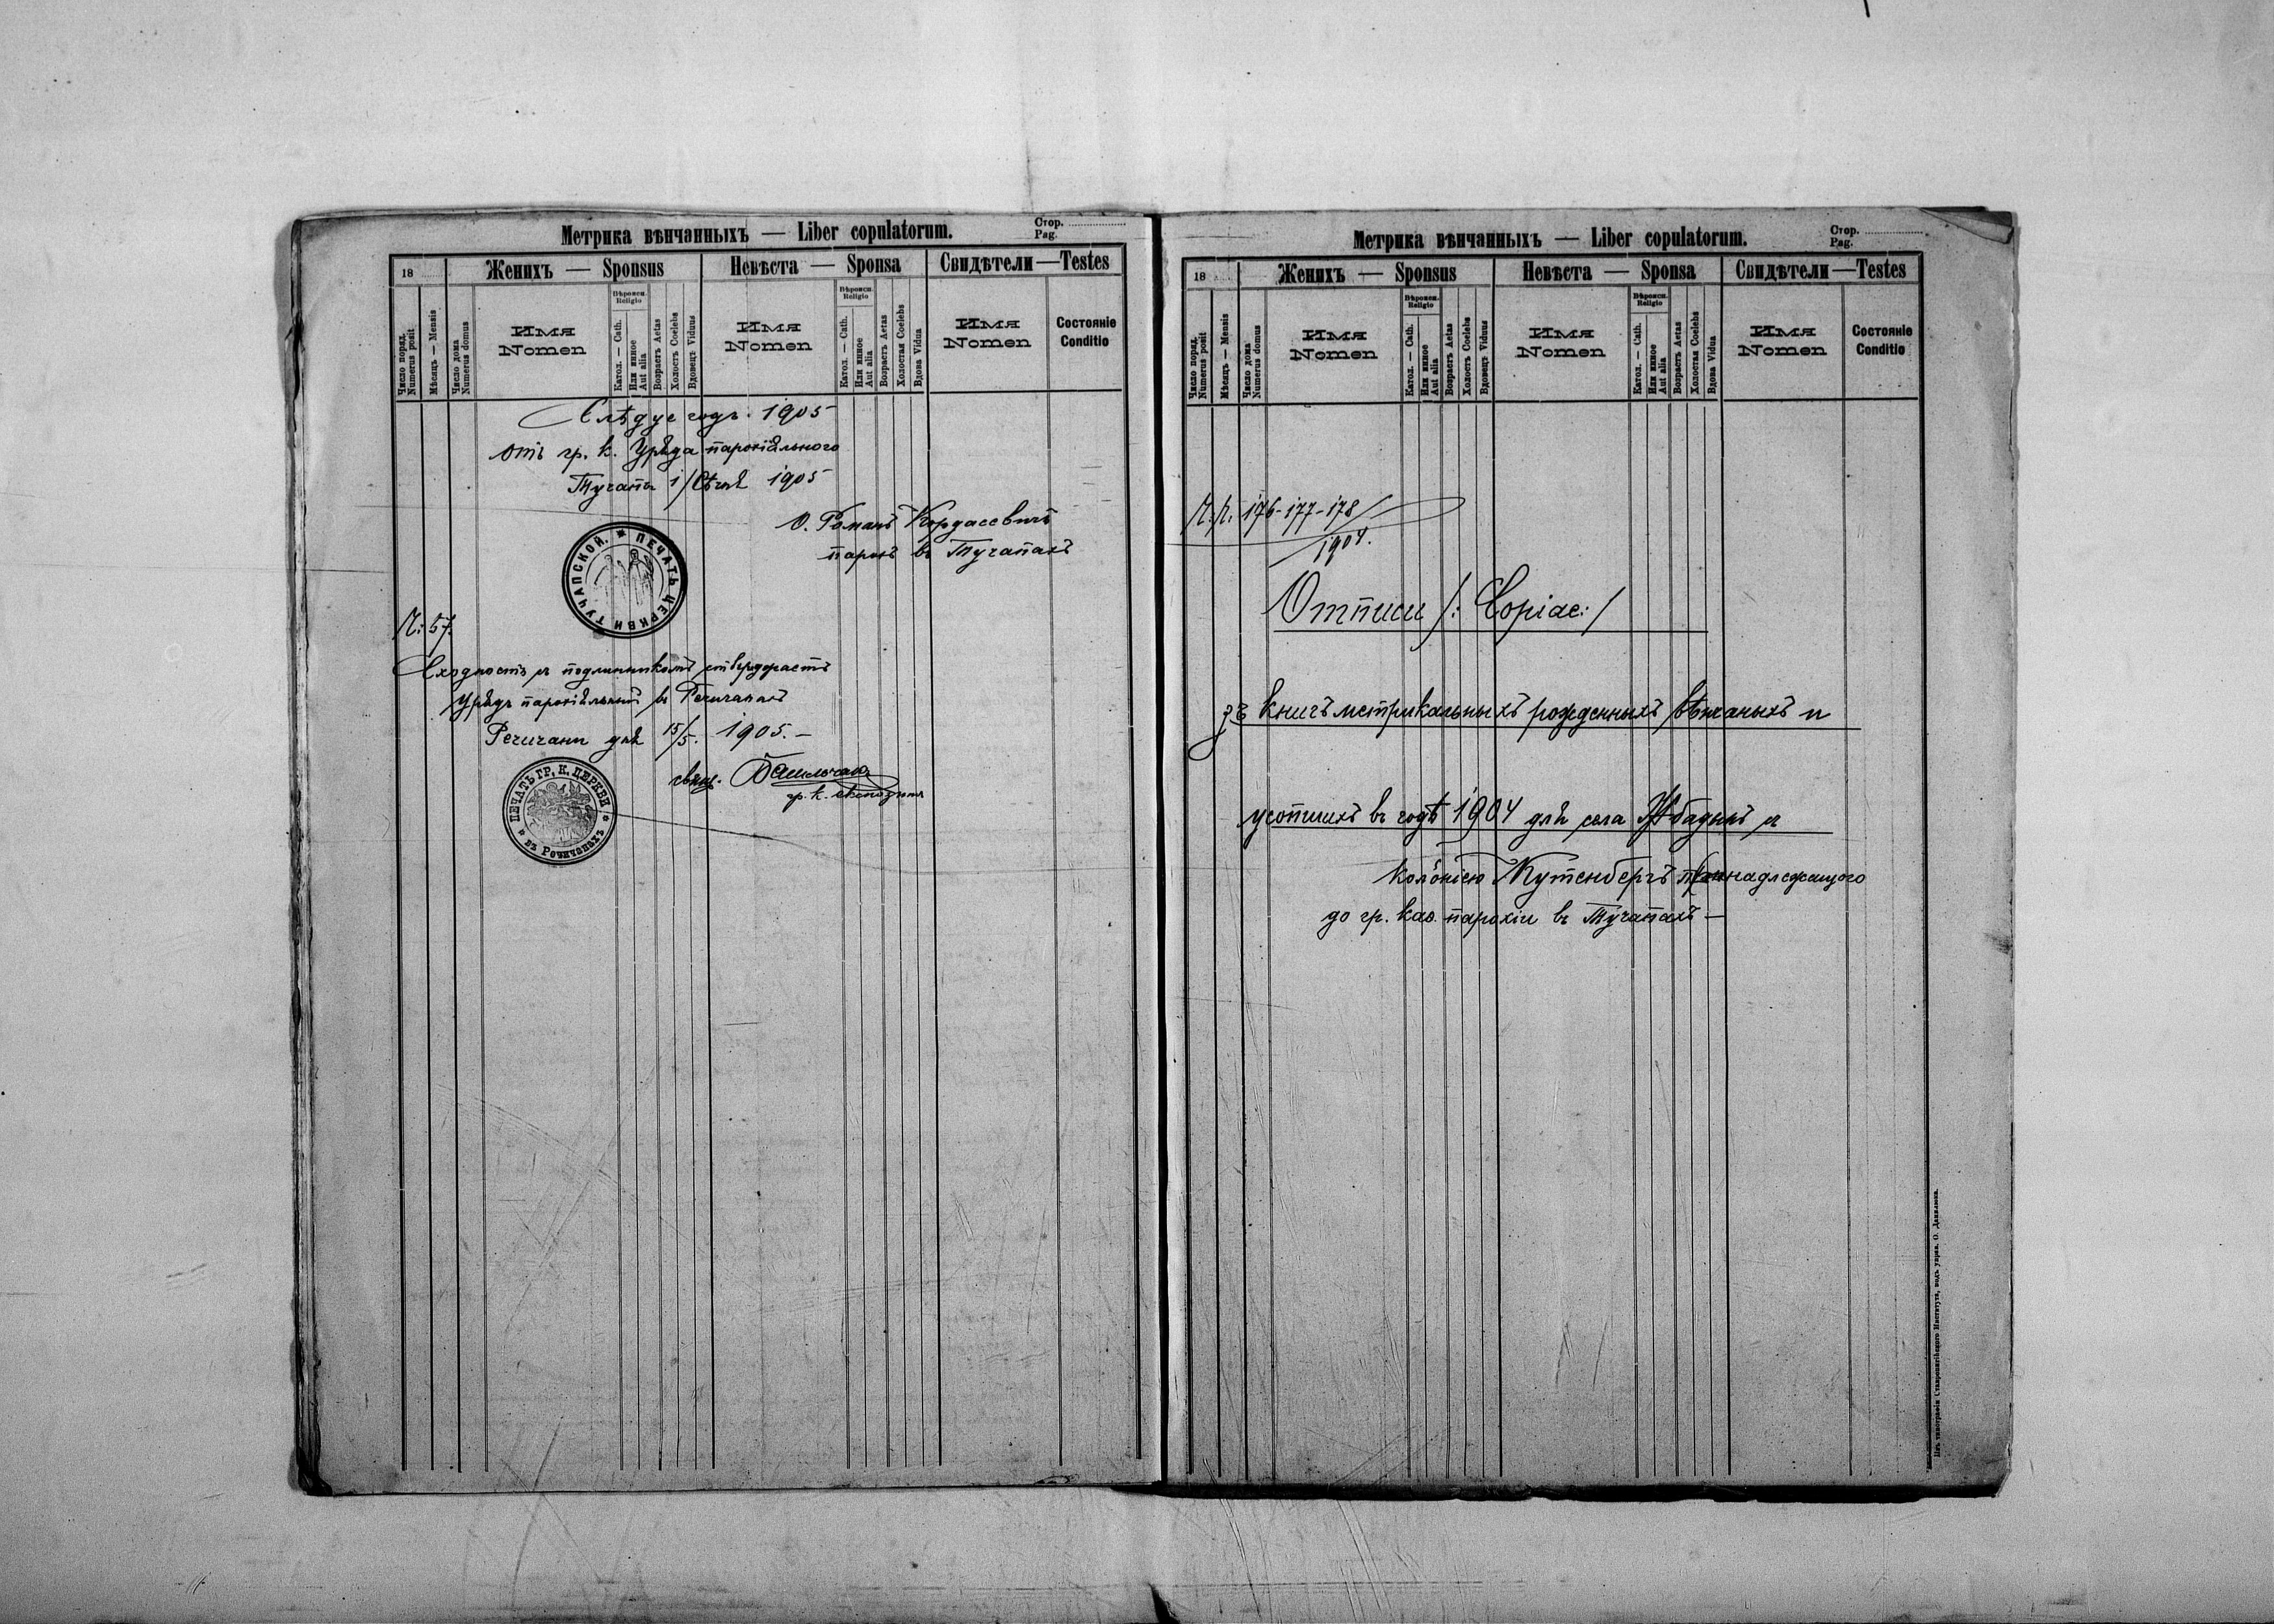 Метрика вѣнчанныхъ — Liber copulatorum.
Стор.
Pag.
18
Женихъ — Sponsus
Невѣста — Sponsa
Свидѣтели — Testes
Число поряд.
Numerus posit
Мѣсяцъ — Mensis
Число дома
Numerus domus
Имя
Nomen
Вѣроисп.
Religio
Катол. — Cath.
Или инное
Aut alia
Возрастъ Aetas
Холостъ Coelebs
Вдовецъ Viduus
Имя
Nomen
Вѣроисп.
Religio
Катол. — Cath.
Или инное
Aut alia
Возрастъ Aetas
Холостая Coelebs
Вдова Vidua
Имя
Nomen
Состояніе
Conditio
Слѣдує годъ 1905
Отъ гр. к. Уряда парохіяльного
Тучапы 1/Сѣчня 1905
О. Романъ Кордасевичъ
парохъ въ Тучапахъ
ПЕЧАТЬ ЦЕРКВИ ТУЧАПСКОЙ.
Ч: 57.
Сходность съ подлинникомъ ствердждаетъ
Урядъ парохіяльный въ Речичанахъ
Речичаны дня 15/5. 1905. —
свящ.
гр. к.
ПЕЧАТЬ ГР. К. ЦЕРКВИ
въ Речичанахъ
Метрика вѣнчанныхъ — Liber copulatorum.
Стор.
Pag.
18
Женихъ — Sponsus
Невѣста — Sponsa
Свидѣтели — Testes
Число поряд.
Numerus posit
Мѣсяцъ — Mensis
Число дома
Numerus domus
Имя
Nomen
Вѣроисп.
Religio
Катол. — Cath.
Или инное
Aut alia
Возрастъ Aetas
Холостъ Coelebs
Вдовецъ Viduus
Имя
Nomen
Вѣроисп.
Religio
Катол. — Cath.
Или инное
Aut alia
Возрастъ Aetas
Холостая Coelebs
Вдова Vidua
Имя
Nomen
Состояніе
Conditio
176-177-178/
1904.
Отписи /: Copiae: /
зъ книгъ метрикальныхъ рожденныхъ вѣнчаныхъ и
усопшихъ въ годѣ 1904 для села съ
колонією принадлежащого
до гр. каѳ. парохіи въ Тучапахъ —
Изъ типографіи Ставропигійского Института, подъ управ. О. Данилюка.